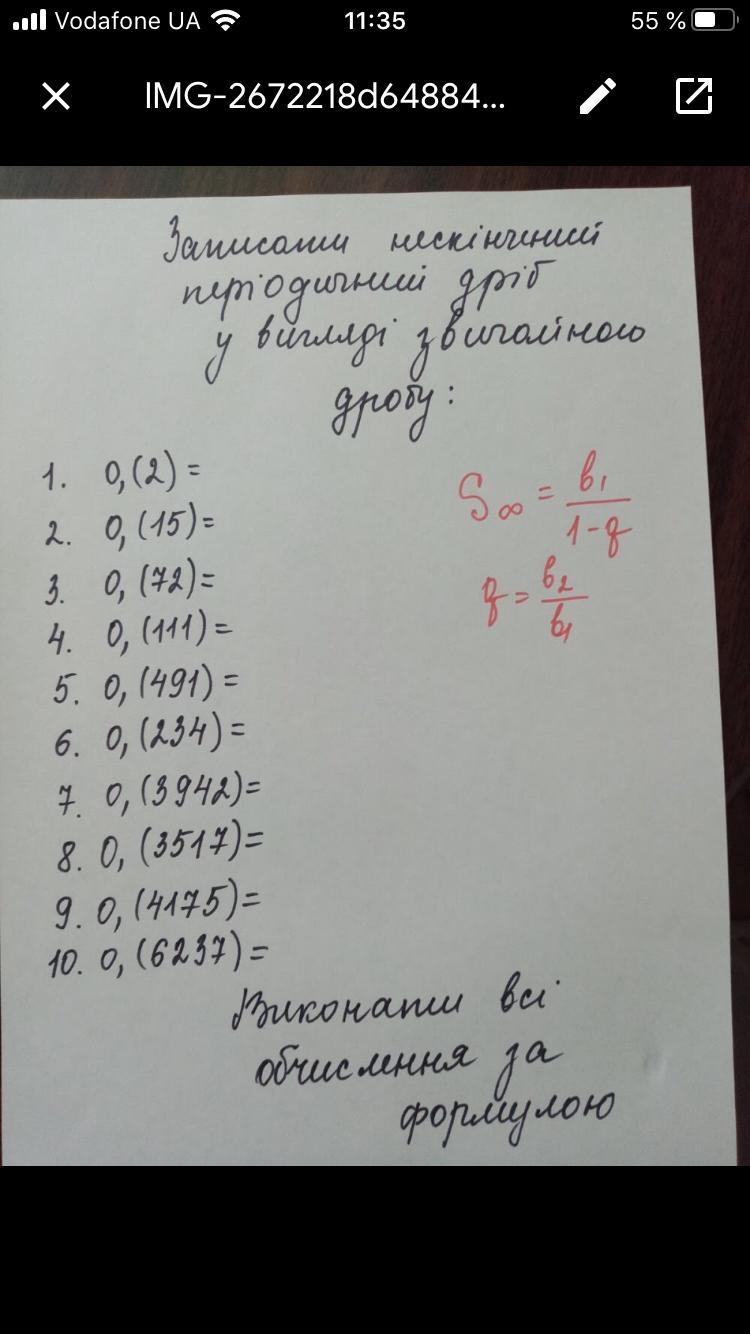 Vodafone UA 11:35 55 %
IMG-2672218d64884...
Записати нескінчений
періодичний дріб
у вигляді звичайного
дробу:
1. 0,(2) =
2. 0,(15)=
3. 0,(72)=
4. 0,(111)=
5. 0,(491)=
6. 0,(234)=
7. 0,(3942)=
8. 0,(3517)=
9. 0,(4175)=
10. 0,(6237)=
S∞ = b₁/(1-q)
q = b₂/b₁
Виконати всі
обчислення за
формулою